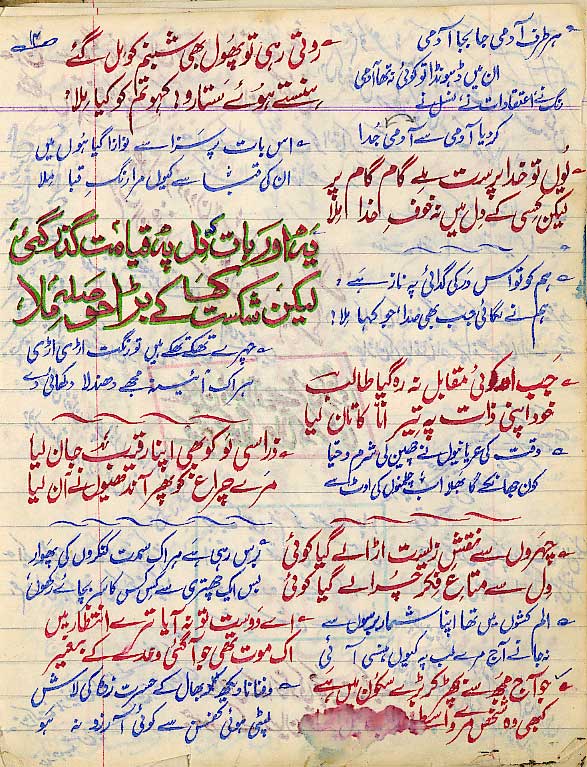 ۱۳
ہر طرف آدمی جابجا آدمی
ان میں ڈھونڈا تو کوئی نہ تھا آدمی
رنگ نے اعتقادات نے نسل نے
کر دیا آدمی سے آدمی جُدا
یُوں تو خدا پرست ملے گام گام پر
لیکن کِسی کے دِل میں نہ خوفِ خدا مِلا
ہم کو تو اس در کی گدائی پہ ناز ہے
ہم نے لگائی جب بھی صدا جو کہا مِلا
جب اور کوئی مقابل نہ رہ گیا طالب
خود اپنی ذات پہ تیر انا کا تان لیا
وقت کی عریانیوں نے چھین لی شرم و حیا
کون جھانکے گا بھلا اب چلمنوں کی اوٹ سے
چہروں سے نقشِ زیست اڑا لے گیا کوئی
دل سے متاعِ فکر چُرا لے گیا کوئی
الم کشوں میں تھا اپنا شمار برسوں سے
نجانے آج مرے لب پہ کیوں ہنسی آئی
جو آج مجھ سے بچھڑ کر بڑے سکون میں ہے
کبھی وہ شخص مرے واسطے
روتی رہی تو پھُول بھی شبنم کو مل گئے
ہنستے ہوئے ستارو! کہو تم کو کیا مِلا!
اس بات پر سزا سے نوازا گیا ہوں میں
ان کی قبا سے کیوں مرا رنگِ قبا مِلا
یہ اور بات دِل پہ قیامت گذر گئی
لیکن شکست کھا کے بڑا حوصلہ مِلا
چہرے تھکے تھکے ہیں تو رنگت اڑی اڑی
ہر اک آئینہ مجھے دھندلا دکھائی دے
ذرا سی لو کو بھی اپنا رقیب جان لیا
مرے چراغ کو پھر آندھیوں نے آن لیا
برس رہی ہے ہر اک سمت کنکروں کی پھوار
بس ایک چھتری سے کس کس کا سر بچائے رکھوں
اے دوست تو نہ آیا ترے انتظار میں
اک موت تھی جو آ گئی وعدے کے بغیر
دفنانا دیکھ بھال کے حسرت زدہ کی لاش
لپٹی ہوئی کفن سے کوئی آرزو نہ ہو